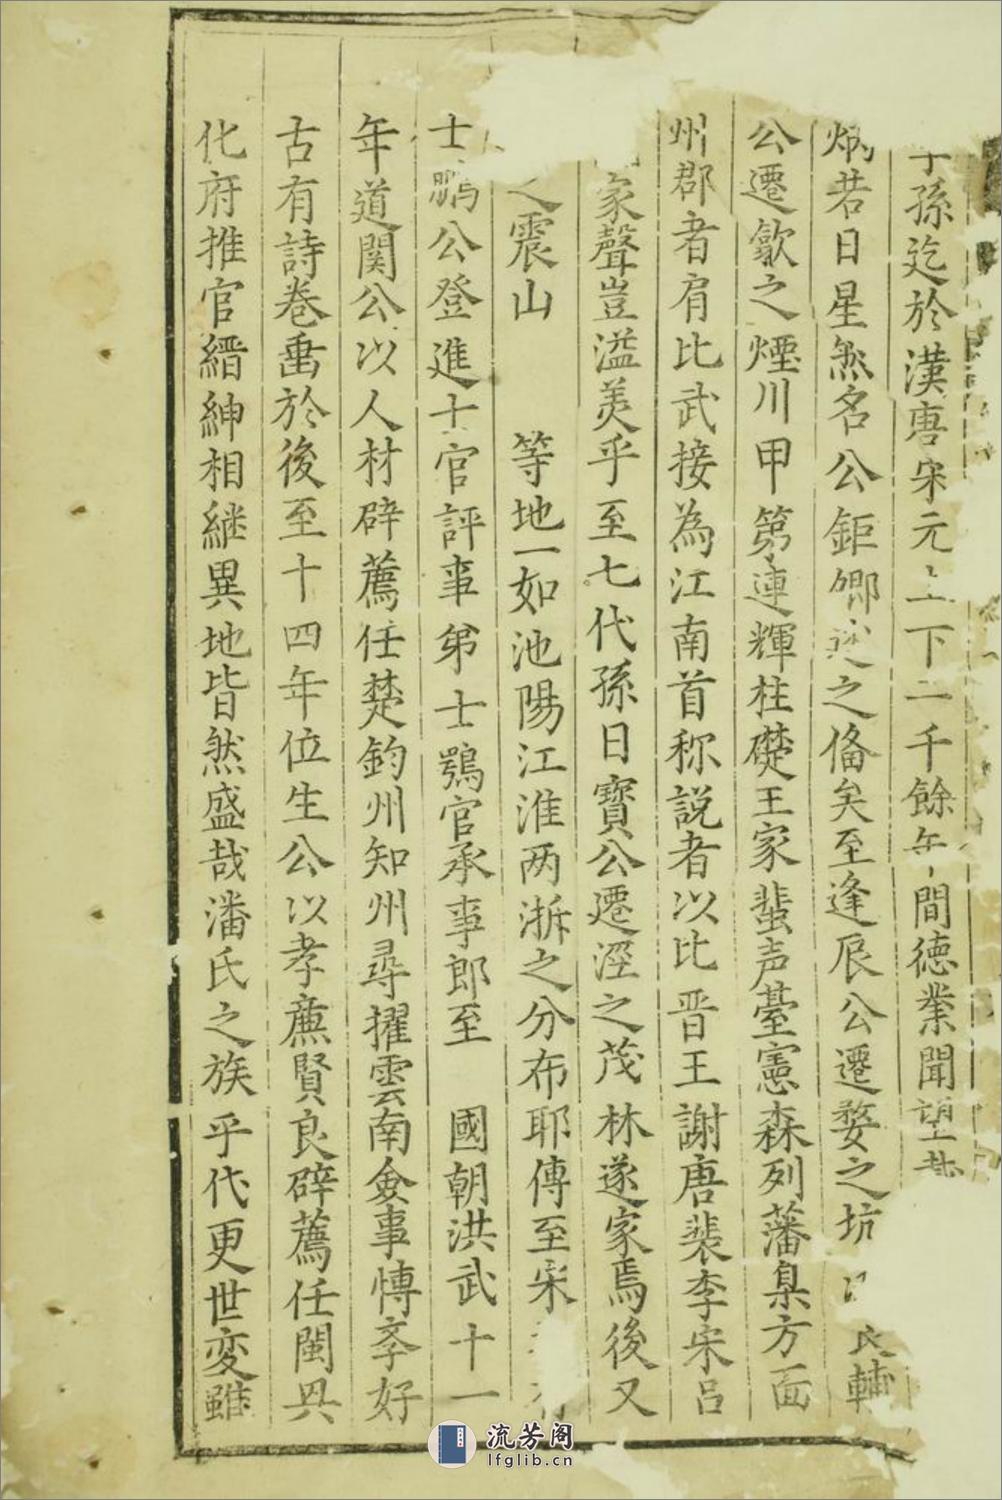 孫迄於漢唐宋元上下二千餘年間德業聞望
炳若日星然名公鉅卿之俻矣至逢辰公遷婺之坑良輔
公遷歙之煙川甲第連輝柱礎王家蜚声臺憲森列藩臬方面
州郡者肩比武接為江南首称説者以比晋王謝唐裴李宋吕
家聲豈溢羙乎至七代孫日寶公遷涇之茂林遂家焉後又
之震山 等地一如池陽江淮两浙之分布耶傳至宋
士鵬公登進士官評事弟士鶚官承事郎至 國朝洪武十一
年道関公以人材辟薦任楚鈞州知州尋擢雲南僉事愽孝好
古有詩巻垂於後至十四年位生公以孝亷賢良辟薦任閩興
化府推官縉紳相継異地皆然盛哉潘氏之族乎代更世变雖
流芳阁
lfglib.cn